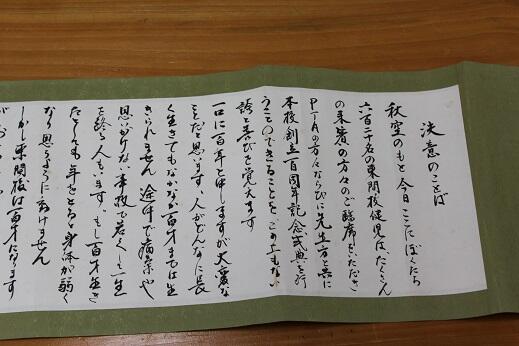 決意のことば
秋空のもと今日ここにぼくたち
六百二十名の東関校健児は、たくさん
の来賓の方々のご臨席をいただき
PTAの方々ならびに先生方と共に
本校創立百周年記念式典を行
うことのできることをこの上もない
誇と喜びを覚えます
一口に百年と申しますが大変な
ことだと思います、人がどんなに長
く生きてもなかなか百才までは生
きられません 途中で病気や
思いがけない事故で若くし一生
を終る人もいます、もし百才生き
たとしても年をとると身体が弱く
なり思うように動けません
しかし東関校は百才になります
が